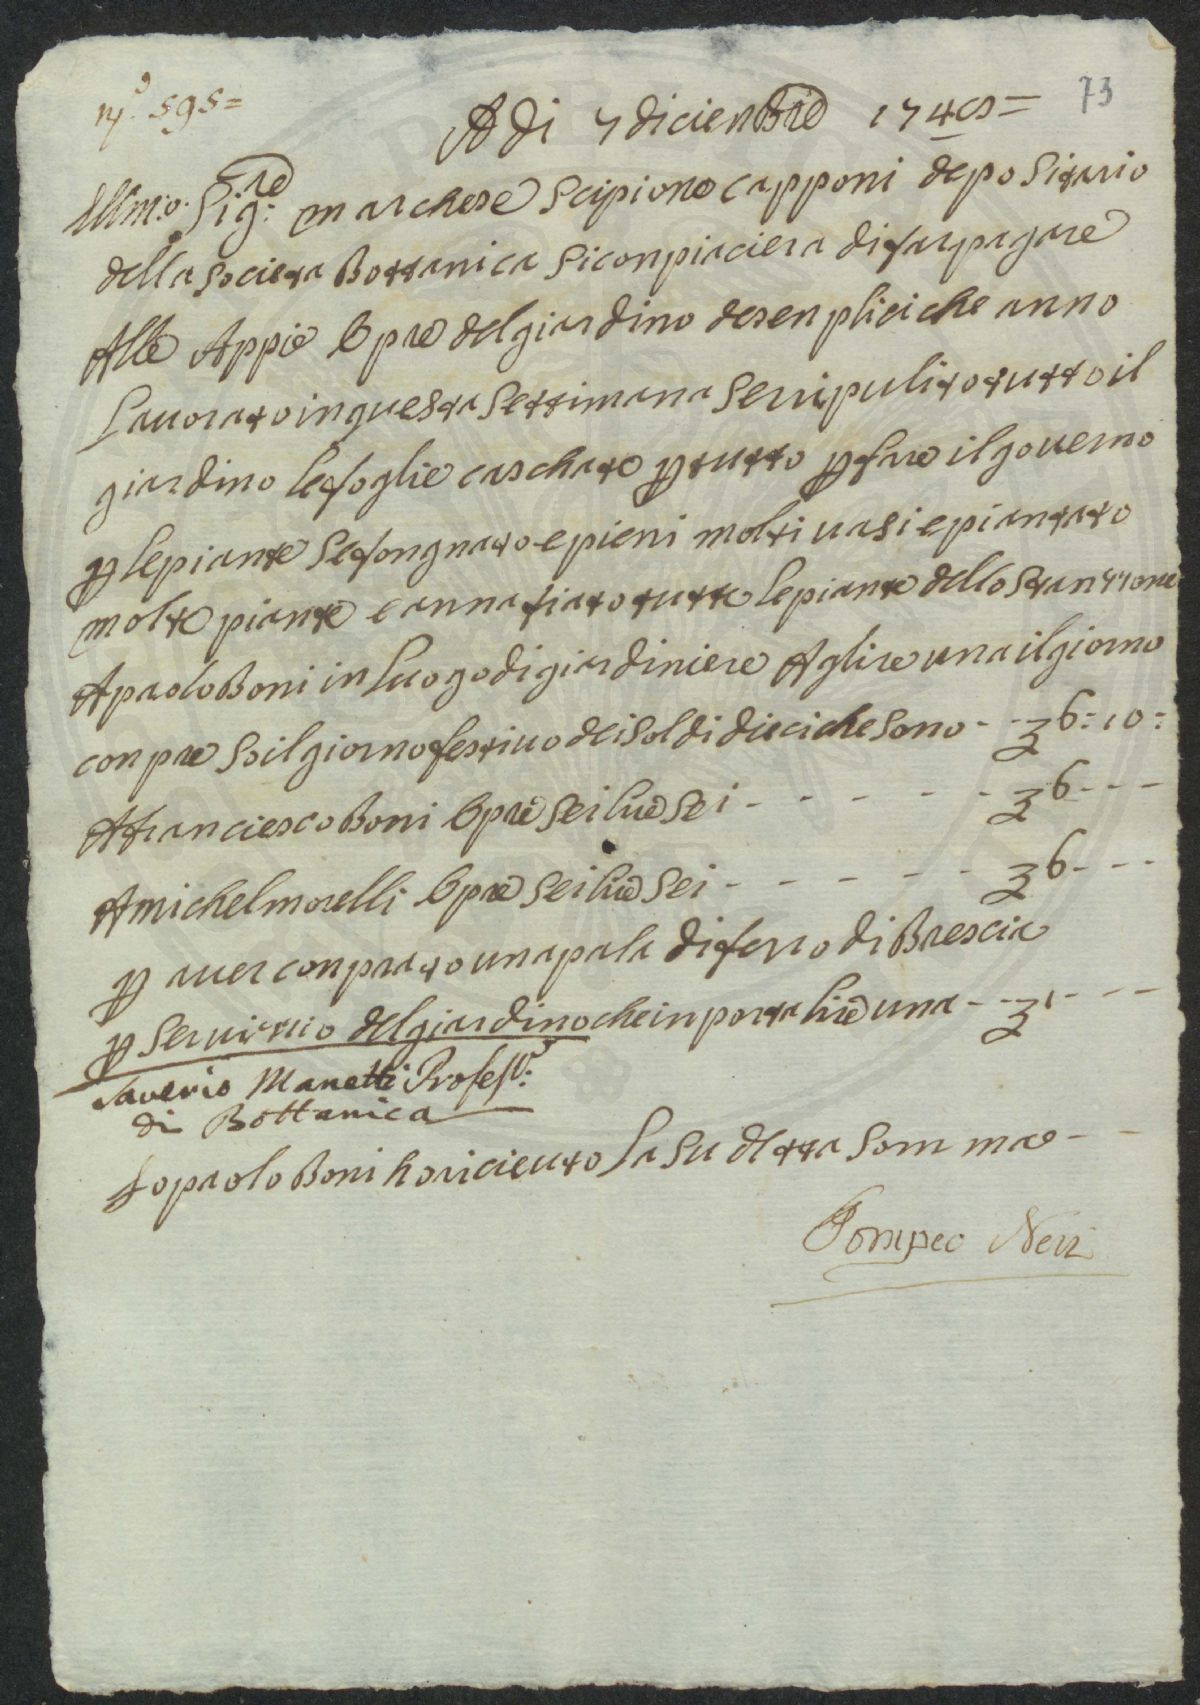 73
Nº 595=
A di 7 dicienbre 174
Illmo: Sig:re marchese Scipione capponi depositario
della Societa Bottanica Si conpiaciera di far pagare
Alle Appie Opre del giardino de senplici che anno
Lauorato in questa Settimana Se ripulito tutto il
giardino le foglie caschate p tutto p fare il gouerno
p le piante Se fongnato e pieni molti uasi e piantato
molte piante e annafiato tutte le piante dello Stanzione
A paolo Boni in luogo di giardiniere A glire una il giorno
conpreso il giorno festiuo dei Soldi dieci che Sono - - 6:10:
A franciesco Boni Opre Sei lire Sei - - - - - - 6 - - -
A michel morelli Opre Sei lire Sei - - - - - - 6 - - -
p auer conprato una pala di ferro di Brescia
p Seruitzio del giardino che inporta lire una - - 1 - - -
Saverio Manetti Profess.re
di Bottanica
Io paolo Boni ho riceuto la Su detta Somma - -
Pompeo Neri